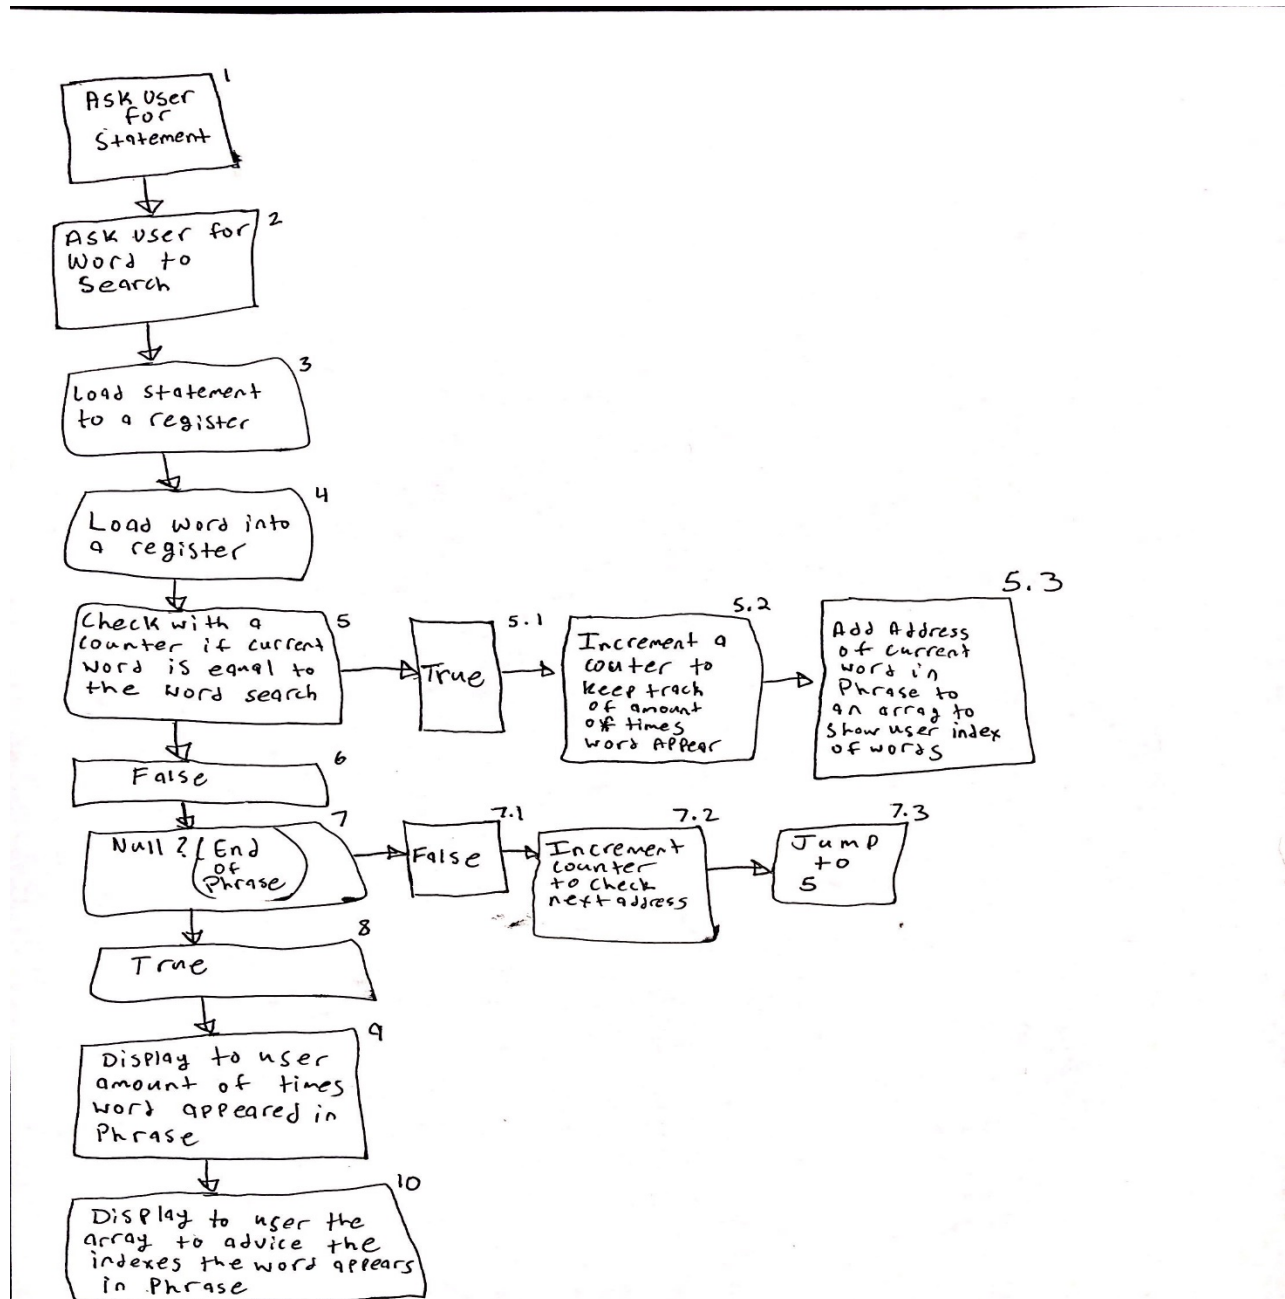 1
Ask User
for
Statement
2
Ask user for
Word to
Search
3
Load statement
to a register
4
Load word into
a register
5
Check with a
counter if current
word is equal to
the word search
5.1
True
5.2
Increment a
couter to
keep track
of amount
of times
word Appear
5.3
Add Address
of current
word in
Phrase to
an array to
show user index
of words
6
False
7
Null? (End
of
Phrase)
7.1
False
7.2
Increment
counter
to check
next address
7.3
Jump
to
5
8
True
9
Display to user
amount of times
word appeared in
Phrase
10
Display to user the
array to advice the
indexes the word appears
in Phrase